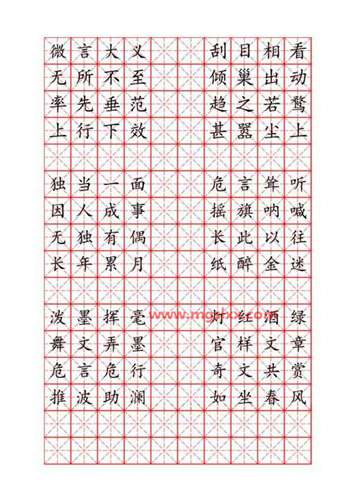 微言大义 刮目相看
无所不至 倾巢出动
率先垂范 趋之若鹜
上行下效 甚嚣尘上
独当一面 危言耸听
因人成事 摇旗呐喊
无独有偶 长此以往
长年累月 纸醉金迷
www.mgzxx.com
泼墨挥毫 灯红酒绿
舞文弄墨 官样文章
危言危行 奇文共赏
推波助澜 如坐春风